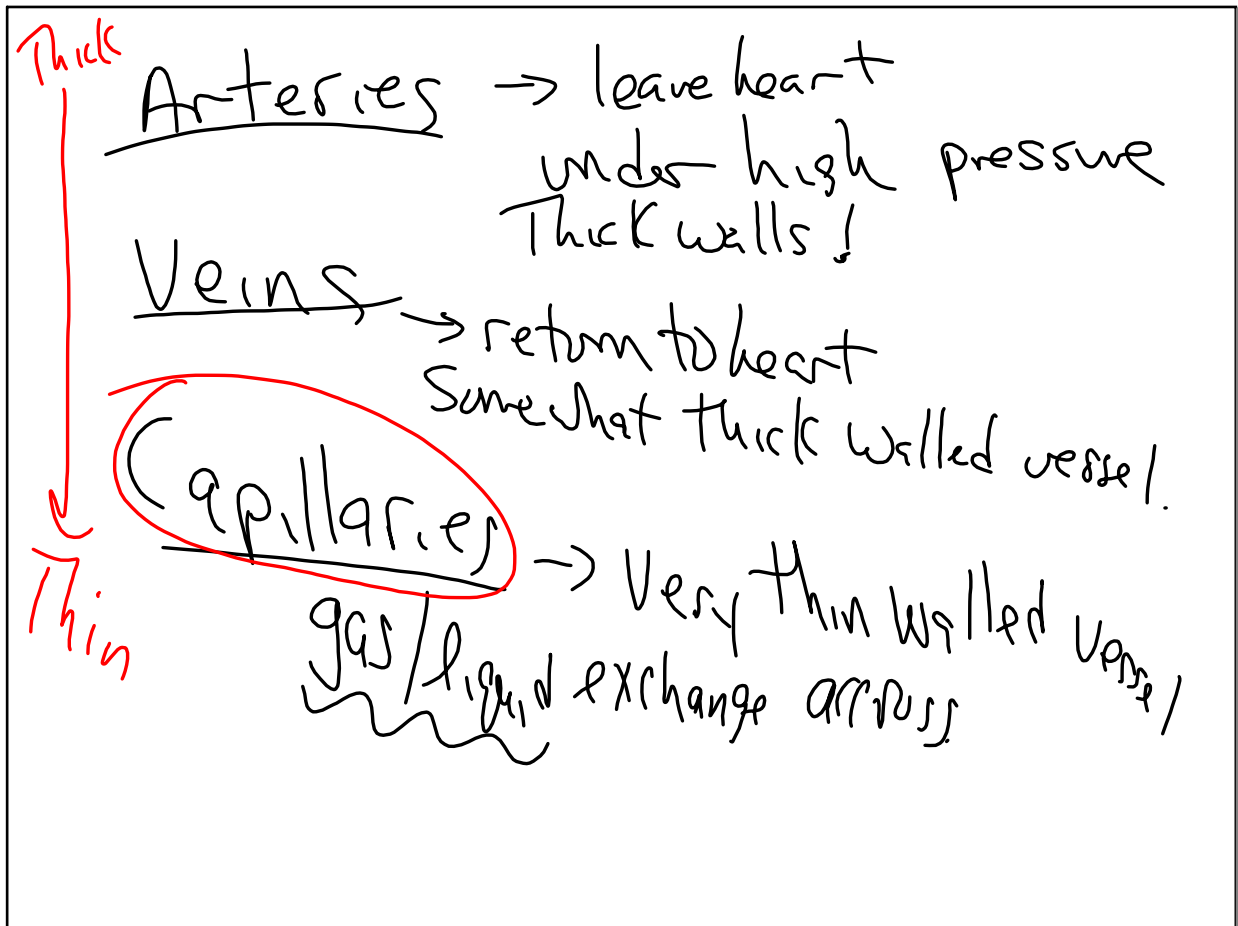 Thick
Arteries → leave heart
under high pressure
Thick walls!
Veins → return to heart
Somewhat thick walled vessel.
Capillaries → Very thin walled vessel
Thin
gas/liquid exchange across